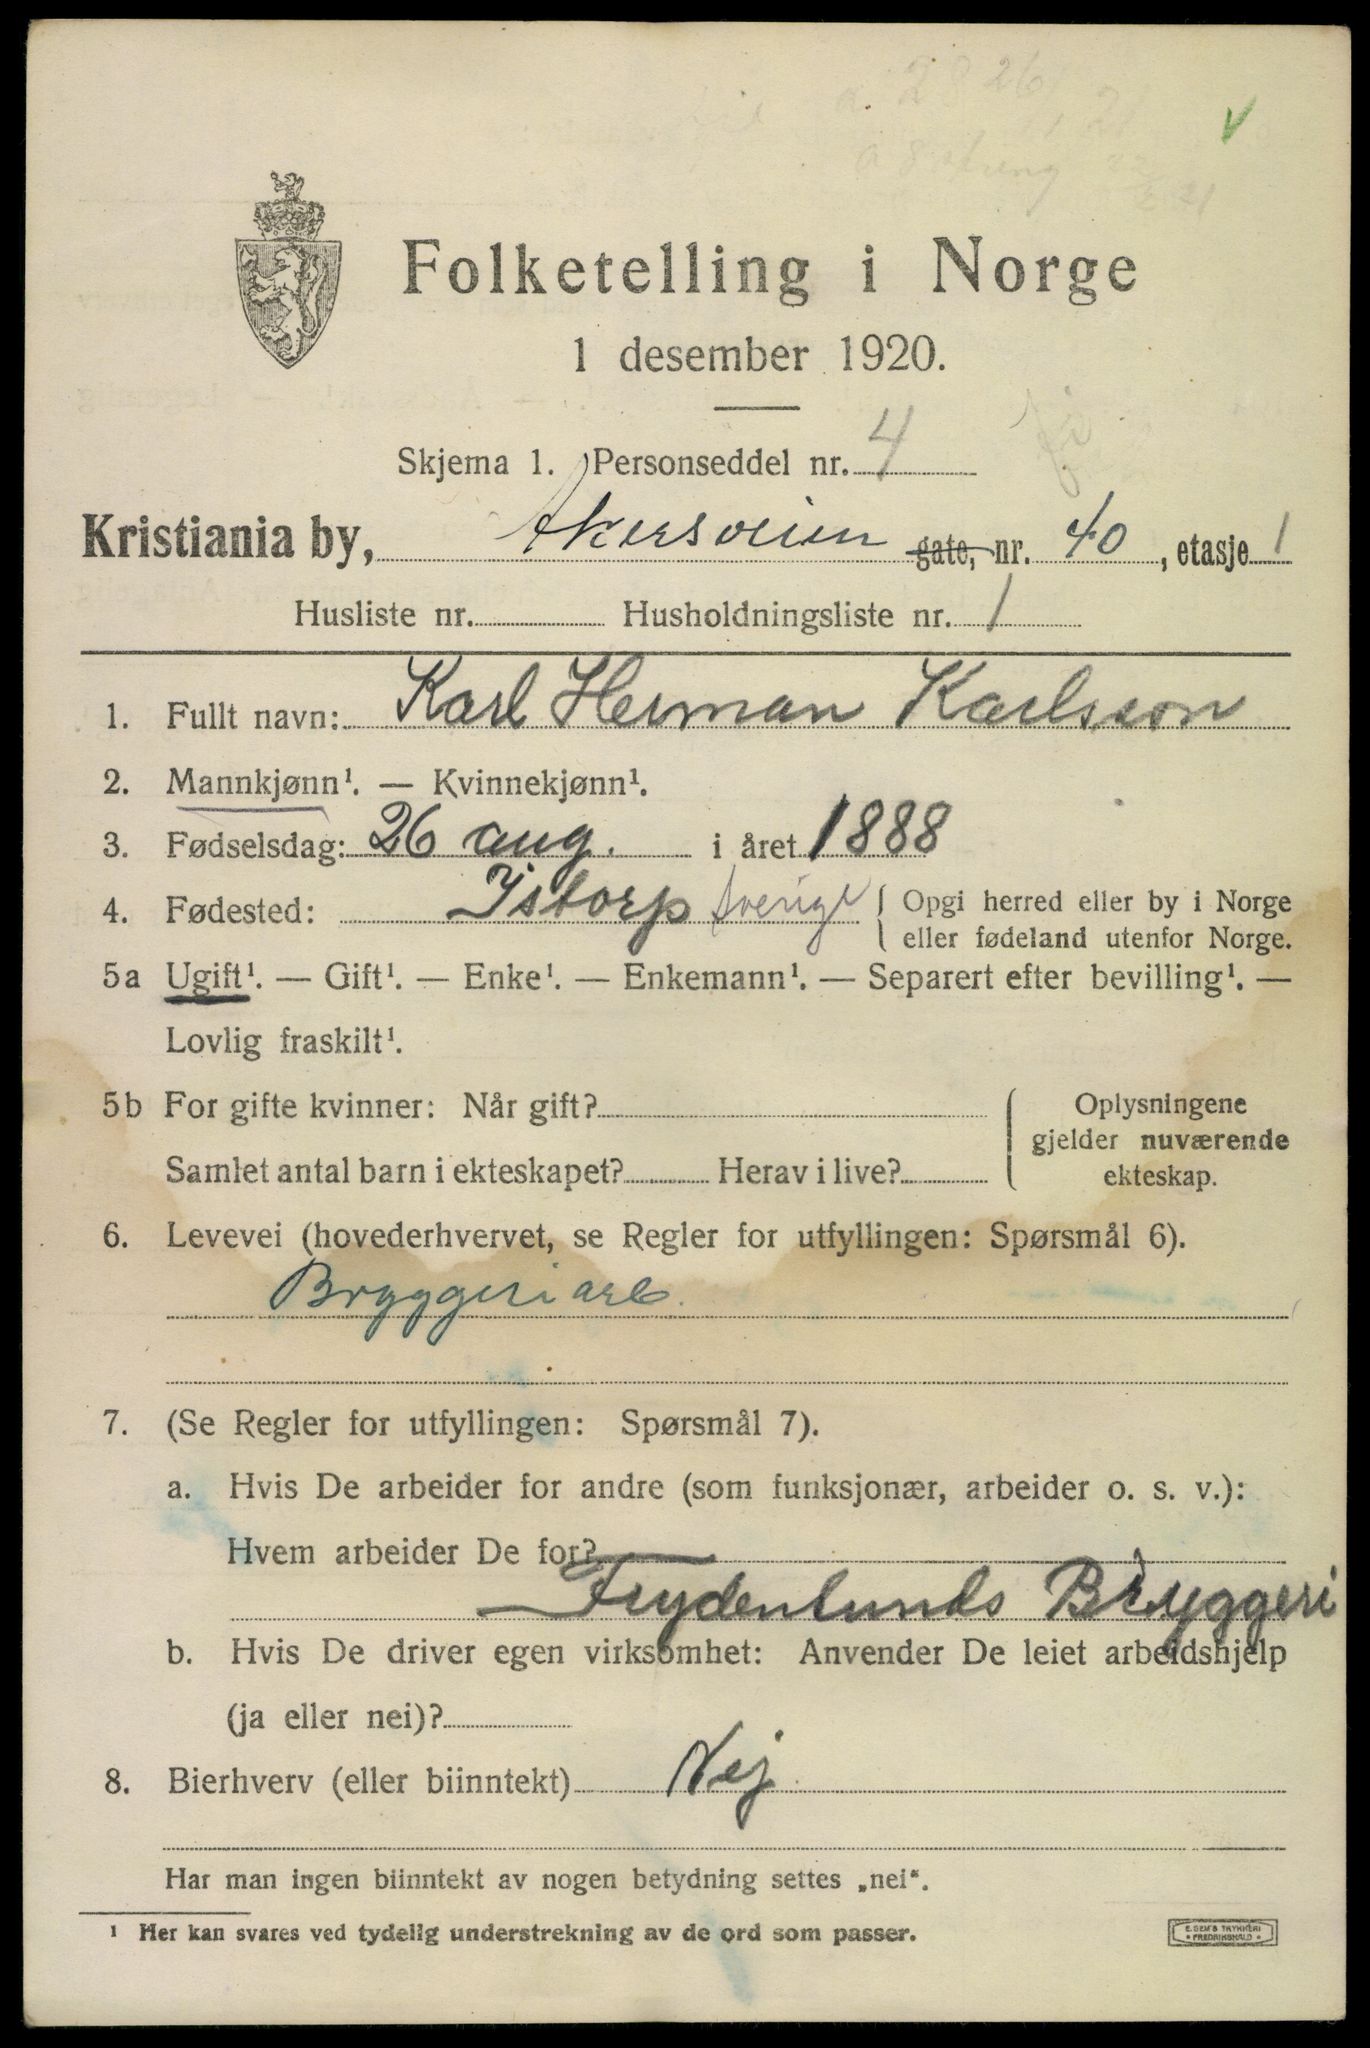 Folketelling i Norge
1 desember 1920.
Skjema 1. Personseddel nr. 4
Kristiania by, Akersveien gate, nr. 40, etasje 1
Husliste nr. Husholdningsliste nr. 1
1. Fullt navn: Karl Herman Karlsson
2. Mannkjønn¹. — Kvinnekjønn¹.
3. Fødselsdag: 26 aug. i året 1888
4. Fødested: Istorp Sverige { Opgi herred eller by i Norge
eller fødeland utenfor Norge.
5a Ugift¹. — Gift¹. — Enke¹. — Enkemann¹. — Separert efter bevilling¹. —
Lovlig fraskilt¹.
5b For gifte kvinner: Når gift? { Oplysningene
gjelder nuværende
Samlet antal barn i ekteskapet? Herav i live? ekteskap.
6. Levevei (hovederhvervet, se Regler for utfyllingen: Spørsmål 6).
Bryggeriarb.
7. (Se Regler for utfyllingen: Spørsmål 7).
a. Hvis De arbeider for andre (som funksjonær, arbeider o. s. v.):
Hvem arbeider De for?
Frydenlunds Bryggeri
b. Hvis De driver egen virksomhet: Anvender De leiet arbeidshjelp
(ja eller nei)?
8. Bierhverv (eller biinntekt) Nej
Har man ingen biinntekt av nogen betydning settes „nei“.
¹ Her kan svares ved tydelig understrekning av de ord som passer.
E. SEM'S TRYKKERI
FREDRIKSHALD